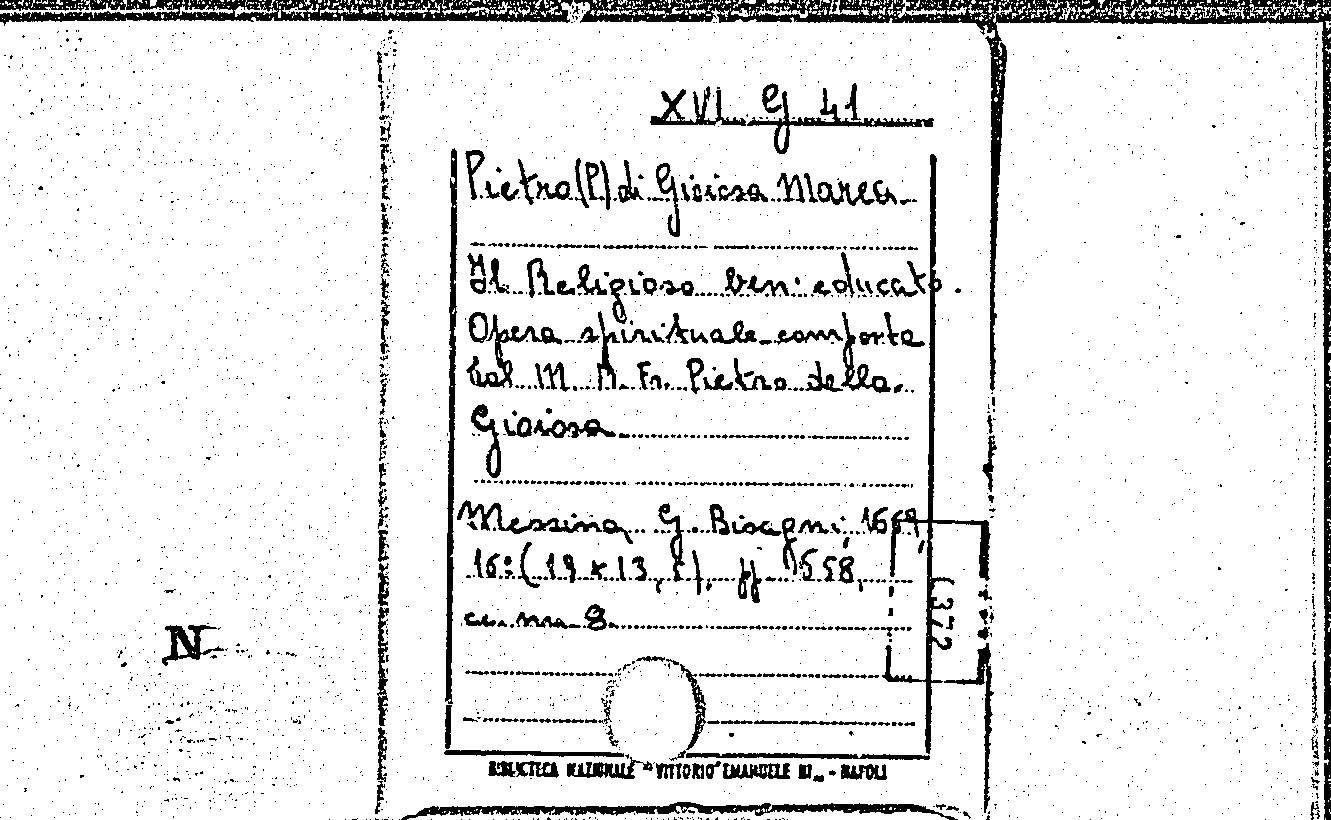 XVI G 41
Pietro (P) di Gioiosa Marea
Il Religioso ben educato.
Opera spirituale composta
dal M. R. Fr. Pietro della
Gioiosa
Messina G. Bisagni, 1669,
16: (19 x 13,5), ff. 558,
cc. nn 8
(372
N
BIBLIOTECA NAZIONALE "VITTORIO EMANUELE III" - NAPOLI